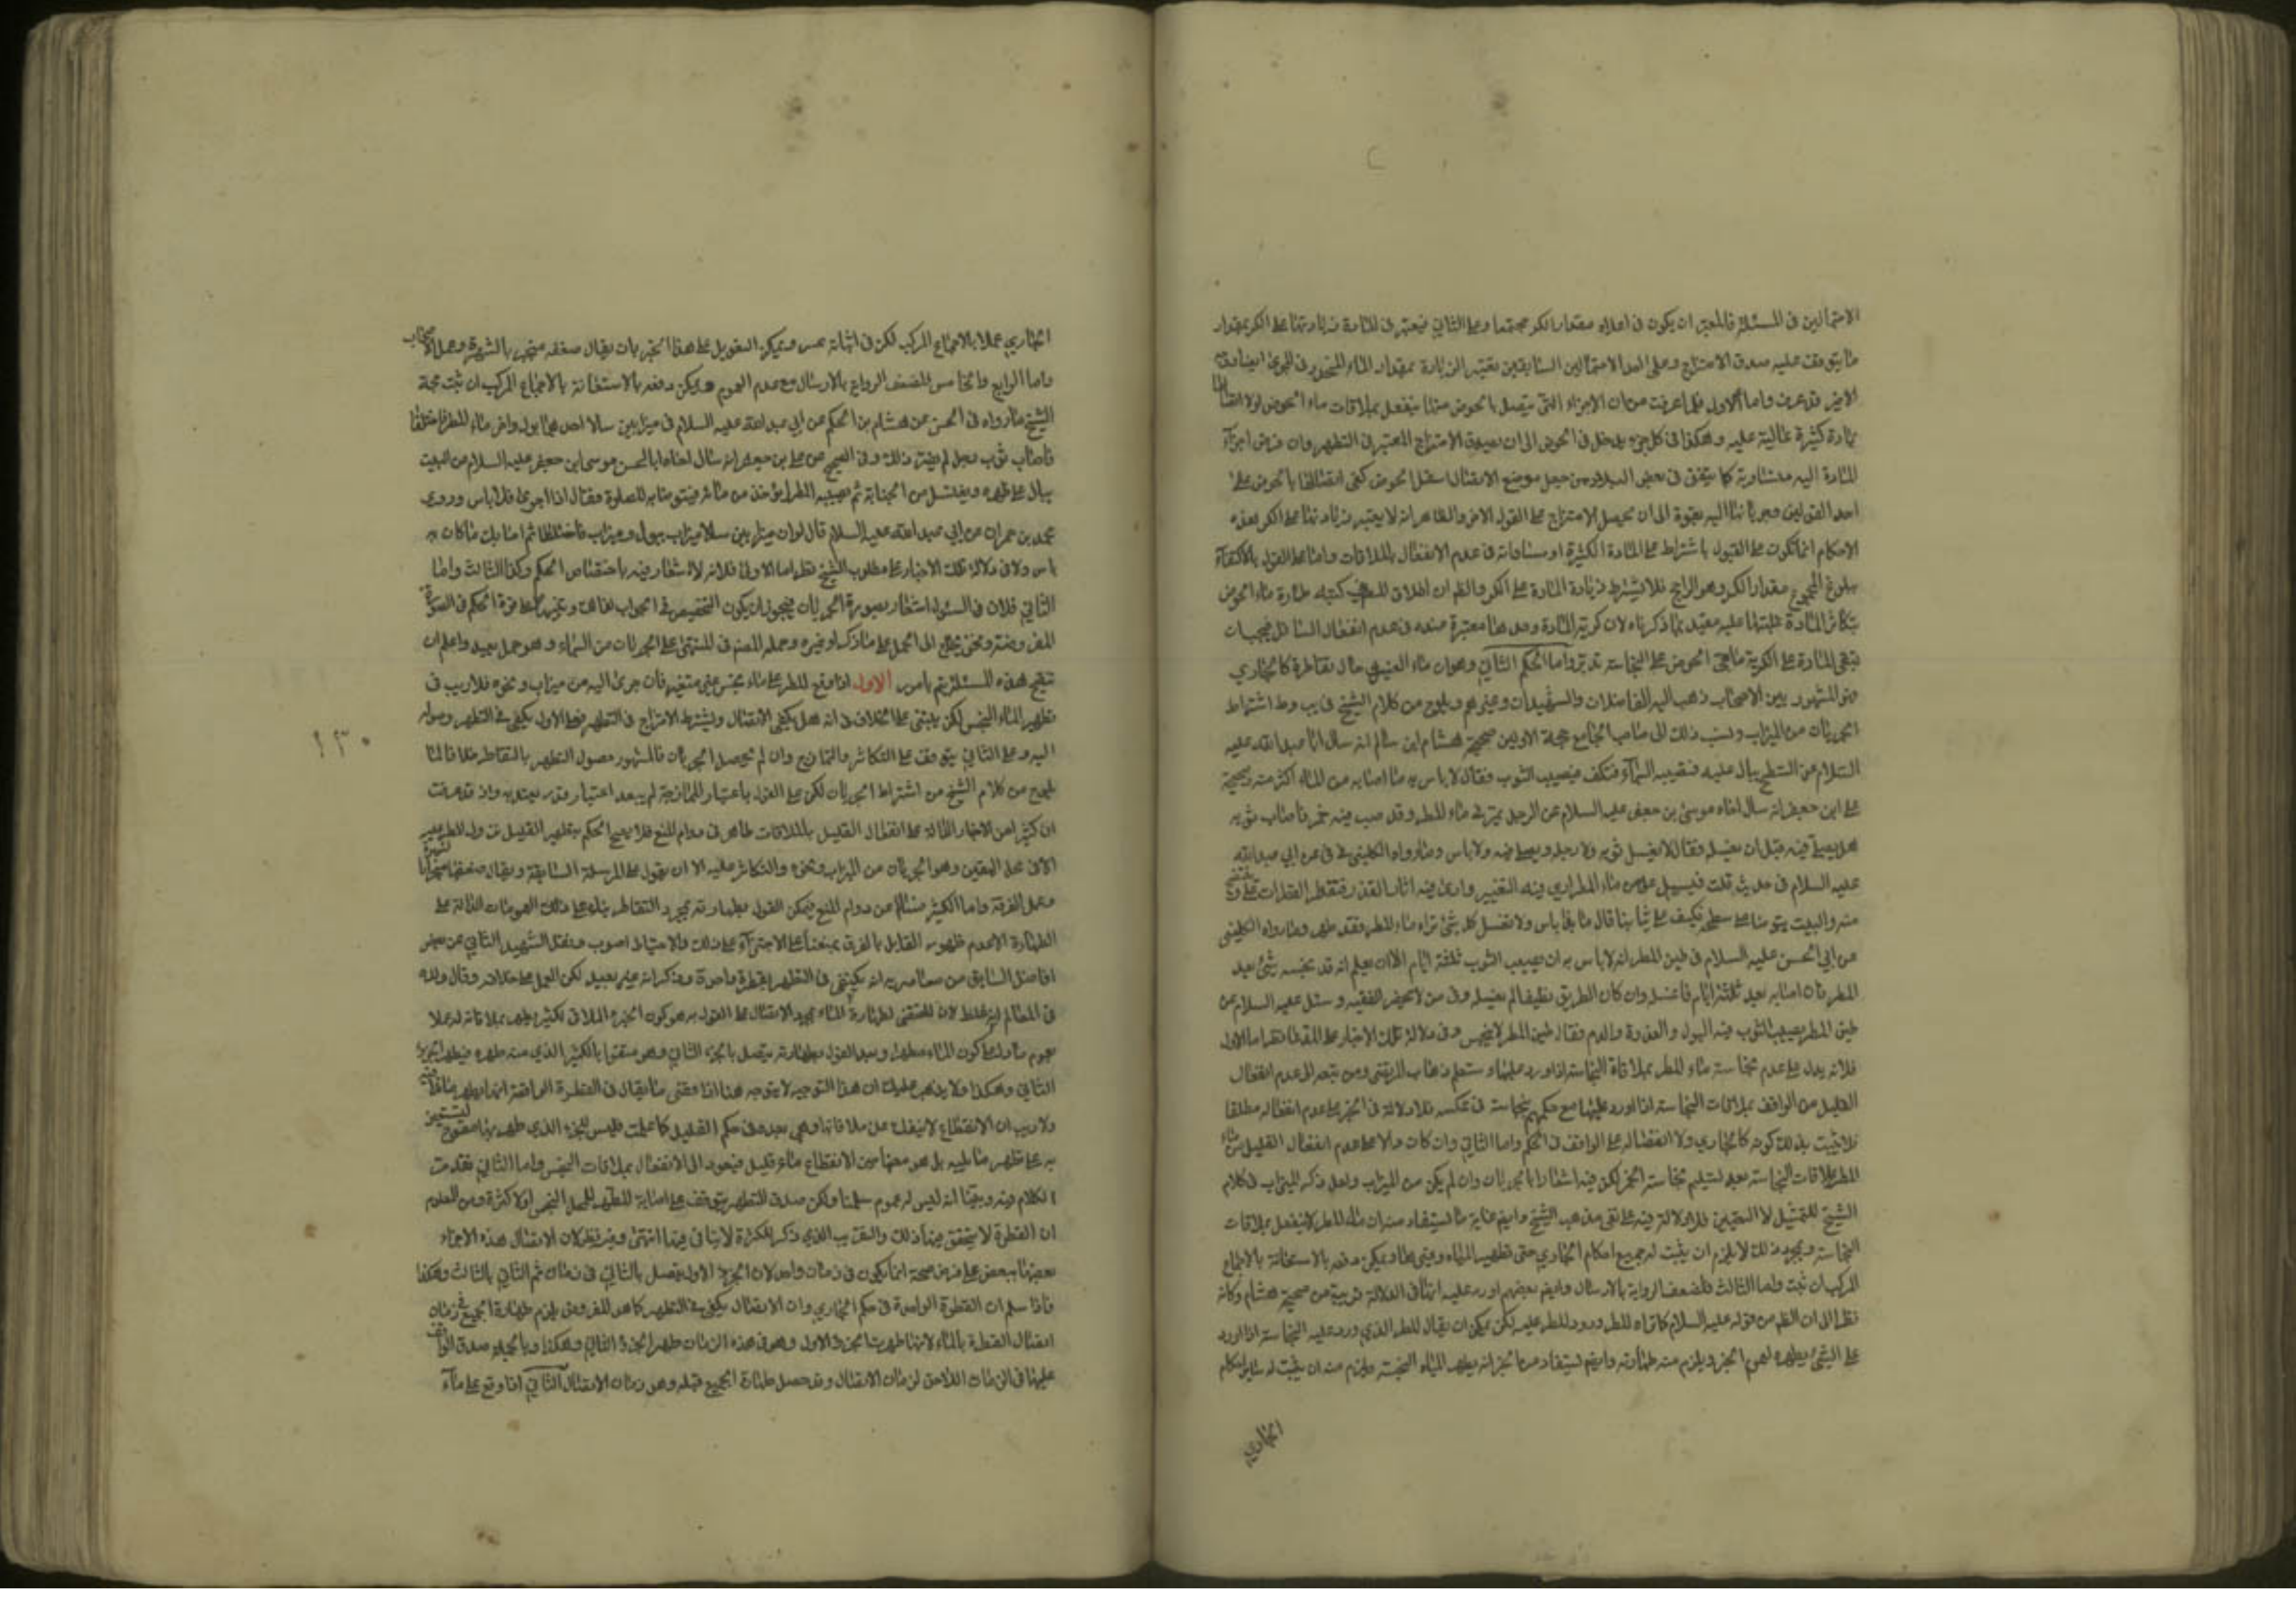 الاحتمالين في المسئلة فالمعتبر ان يكون في اعلاه مقدار الكر مجتمعا وعلى الثاني فيعتبر في المادة زيادتها على الكر بمقدار
ما يتوقف عليه صدق الامتزاج وعلى احد الاحتمالين السابقين يعتبر الزيادة بمقدار الماء المنحدر في المجرى ايضا
الاخير قد عرفت واما الاول فلما عرفت من ان الاجزاء التي يتصل بالحوض منها ينفعل بملاقات ماء الحوض لولا اتصالها
بمادة كثيرة عالية عليه وهكذا في كل جزء يدخل في الحوض الى ان يصدق الامتزاج المعتبر في التطهير وان فرض اجزآء
المادة اليه متساوية كما يتفق في بعض البلاد من جعل موضع الاتصال اسفل الحوض كفى اتصالها بالحوض على
احد القولين وجريانها اليه بقوة الى ان يحصل الامتزاج على القول الاخر والظاهر انه لا يعتبر زيادتها على الكر بعد
الاحكام انما تكون على القول باشتراط المادة الكثيرة او مساواته في عدم الانفعال بالملاقات واما على القول بالاكتفآء
ببلوغ المجموع مقدار الكر وهو الراجح فلا يشترط زيادة المادة على الكر والظ ان اطلاق المصنف كتبه طهارة ماء الحوض
بتكاثر المادة عليه مقيد بما ذكرناه لان كرية المادة وحدها معتبرة عنده في عدم انفعال السافل فيجب ان
تبقى المادة على الكرية ما بقي الحوض على النجاسة تدبر واما الحكم الثاني وهو ان ماء الغيث حال تقاطره كالجاري
فهو المشهور بين الاصحاب ذهب اليه الفاضلان والشهيدان وغيرهم ويلوح من كلام الشيخ في يب وط اشتراط
الجريان من الميزاب ونسب ذلك الى صاحب الجامع حجة الاولين صحيحة هشام ابن سالم انه سال ابا عبد الله عليه
السلام عن السطح يبال عليه فتصيبه السمآء فتكف فيصيب الثوب فقال لا باس به ما اصابه من الماء اكثر منه وصحيحة
على ابن جعفر انه سال اخاه موسى بن جعفر عليه السلام عن الرجل يمر في ماء المطر وقد صب فيه خمر فاصاب ثوبه
هل يصلي فيه قبل ان يغسله فقال لا يغسل ثوبه ولا رجله ويصلي فيه ولا باس وما رواه الكليني في في عن ابي عبد الله
عليه السلام في حديث قلت فيسيل علي من ماء المطر ارى فيه التغيير وارى فيه اثار القذر فتقطر القطرات علي وينتضح
منه والبيت يتوضا على سطحه فيكف على ثيابنا قال ما بذا باس ولا تغسل كل شيء تراه ماء المطر فقد طهر وما رواه الكليني
عن ابي الحسن عليه السلام في طين المطر انه لا باس به ان يصيب الثوب ثلثة ايام الا ان يعلم انه قد نجسه شيء بعد
المطر فان اصابه بعد ثلثة ايام فاغسله وان كان الطريق نظيفا لم يغسله وفي من لا يحضر الفقيه وسئل عليه السلام عن
طين المطر يصيب الثوب فيه البول والعذرة والدم فقال طين المطر لا ينجس وفي دلالة تلك الاخبار على المقصد نظر اما الاول
فلانه يدل على عدم نجاسة ماء المطر بملاقاة النجاسة اذا ورد عليها وستعلم ذهاب المرتضى ومن تبعه الى عدم انفعال
القليل من الواقف بملاقات النجاسة اذا ورد عليها مع حكمهم بنجاسة في عكسه فلا دلالة في الخبر على عدم انفعاله مطلقا
فلا يثبت بذلك كونه كالجاري ولا انفصاله على الواقف في الحكم واما الثاني وان كان دالا على عدم انفعال القليل من ماء
المطر بملاقات النجاسة بعد تسليم نجاسة الخمر لكن فيه اشعارا بالجريان وان لم يكن من الميزاب ولعل ذكر الميزاب في كلام
الشيخ للتمثيل لا التعيين فلا دلالة فيه على نفي مذهب الشيخ وايضا غاية ما يستفاد منه ان ماء المطر لا ينفعل بملاقات
النجاسة وبمجرد ذلك لا يلزم ان يثبت له جميع احكام الجاري حتى تطهير المياه وغيرها ويمكن دفعه بالاستعانة بالاجماع
المركب ان ثبت واما الثالث فلضعف الرواية بالارسال وايضا بعضهم اورد عليه انها في الدلالة قريبة من صحيحة هشام وكانه
نظر الى ان الظ من قوله عليه السلام كل ما تراه المطر ورود المطر عليه لكن يمكن ان يقال المطر الذي ورد عليه النجاسة اذا ورد
على الشيء يطهره لهذا الخبر ويلزم منه طهارته وايضا يستفاد من الخبر انه يطهر المياه النجسة ويلزم منه ان يثبت له ساير احكام
الجاري
الجاري عملا بالاجماع المركب لكن في اثباته عسر ويمكن التعويل على هذا الخبر بان يقال ضعفه منجبر بالشهرة وعمل الاصحاب
واما الرابع والخامس فلضعف الرواية بالارسال مع عدم العموم ويمكن دفعه بالاستعانة بالاجماع المركب ان ثبت حجة
الشيخ ما رواه في الحسن عن هشام بن الحكم عن ابي عبد الله عليه السلام في ميزابين سالا احدهما بول واخر ماء المطر فاختلطا
فاصاب ثوب رجل لم يضره ذلك وفي الصحيح عن علي بن جعفر انه سال اخاه ابا الحسن موسى ابن جعفر عليه السلام عن البيت
يبال على ظهره ويغتسل من الجنابة ثم يصيبه المطر ايؤخذ من مائه فيتوضا به للصلوة فقال اذا جرى فلا باس وروى
محمد بن حمران عن ابي عبد الله عليه السلام قال لو ان ميزابين سالا ميزاب ببول وميزاب فاختلطا ثم اصابك ما كان به
باس ولا في دلالة تلك الاخبار على مطلوب الشيخ نظر اما الاولى فلانه لا اشعار فيه باختصاص الحكم وكذا الثالث واما
الثاني فلان في السئوال اشعار بصورة الجريان فيجوز ان يكون التخصيص في الجواب لذلك
المفروضة ونحن نحتاج الى الحمل على ما ذكر او غيره وحمله المصنف في المنتهى على الجريان من السماء وهو حمل بعيد واعلم ان
تنقيح هذه المسئلة يتم بامور الاول اذا وقع المطر على ماء نجس غير متغير فان جرى اليه من ميزاب ونحوه فلا ريب في
تطهير الماء النجس لكن يبتنى على الخلاف في انه هل يكفي الاتصال او يشترط الامتزاج في التطهير فعلى الاول يكفي في التطهير وصوله
اليه وعلى الثاني يتوقف على التكاثر والتمازج وان لم يحصل الجريان فالمشهور حصول التطهير بالتقاطر خلافا لما
يلوح من كلام الشيخ من اشتراط الجريان لكن على القول باعتبار الممازجة لم يبعد اعتبار قدر يعتد به واذ قد عرفت
ان كثيرا من الاخبار الدالة على انفعال القليل بالملاقات ظاهر في دوام المنع فلا يصح الحكم بتطهير القليل بنزول المطر عليه
الا في محل اليقين وهو الجريان من الميزاب ونحوه والتكاثر عليه الا ان يقول على المرسلة السابقة ويقال ضعفها منجبر بالشهرة
وعمل الفرقة واما الكثير فسالم عن دوام المنع فيمكن القول بطهارته بمجرد التقاطر بناء على ذلك العمومات الدالة على
الطهارة الا عدم ظهور القائل بالفرق يمنعنا على الاجتزآء على ذلك والاحتياط اصوب ونقل الشهيد الثاني عن بعض
افاضل السابق من معاصريه انه يكتفى في التطهير بقطرة واحدة وذكر انه غير بعيد لكن العمل على خلافه وقال ولده
في المعالم انه غلط لان المقتضي لطهارة الماء بمجرد الاتصال على القول به هو كون الجزء الملاقي لكثير يطهر بملاقاته له عملا
بعموم ما دل على كون الماء مطهرا وبعد القول بطهارته يتصل بالجزء الثاني وهو متقو بالكثير الذي منه طهره فيطهر الجزء
الثاني وهكذا ولا يذهب عليك ان هذا التوجيه لا يتوجه هنا اذا اقصى ما يقال في القطرة الواقعة انها تطهر ما لاقته
ولا ريب ان الانقطاع لا ينفك عن ملاقاتها وهي بعده في حكم القليل كما علمت فليس للجزء الذي طهر بها مقو ليستعين
به على تطهير ما يليه بل هو معها حين الانقطاع ماء قليل فيعود الى الانفعال بملاقات النجس واما الثاني فقد مرت
الكلام فيه وبينا انه ليس له عموم سلمنا ولكن صدق التطهير يتوقف على اصابة المطر للمحل النجس اولا كثرة ومن المعلوم
ان القطرة لا يتحقق فيها ذلك والتقريب الذي ذكر للكثرة لا يتاتى فيها انتهى وفيه نظر لان الاتصال هذه الاجزاء
بعضها ببعض على فرض صحته انما يكون في زمان واحد لان الجزء الاول يتصل بالثاني في زمان ثم الثاني بالثالث وهكذا
فاذا سلم ان القطرة الواحدة في حكم الجاري وان الاتصال يكفي في التطهير كما هو المفروض يلزم طهارة الجميع في زمان
اتصال القطرة بالماء لانها طهرت الجزء الاول وهو في هذه الزمان طهر الجزء الثاني وهكذا وبالجملة صدق الواقف
عليها في الزمان اللاحق لزمان الاتصال وقد حصل طهارة الجميع قبله وهو زمان الاتصال الثاني اذا وقع على مآء
١٣٠